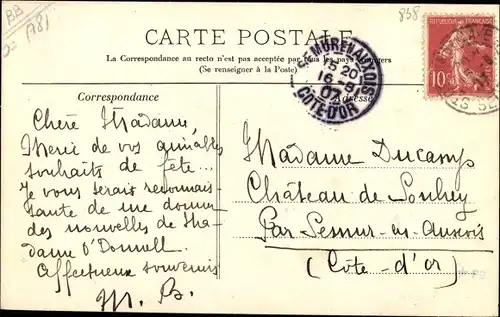 BB
A81
838
CARTE POSTALE
La Correspondance au recto n'est pas acceptée par tous les pays étrangers
(Se renseigner à la Poste)
RÉPUBLIQUE FRANÇAISE
10c
POSTES
SEMUR EN AUXOIS
5 20
16-8
07
COTE D'OR
Correspondance
Adresse
Chère Madame,
Merci de vos aimables
souhaits de fête...
Je vous serais reconnais-
sante de me donner
des nouvelles de Ma-
dame O'Donnell.
Affectueux souvenirs
M. B.
Madame Ducamp
Château de Souhey
Par Semur-en-Auxois
(Côte-d'or)